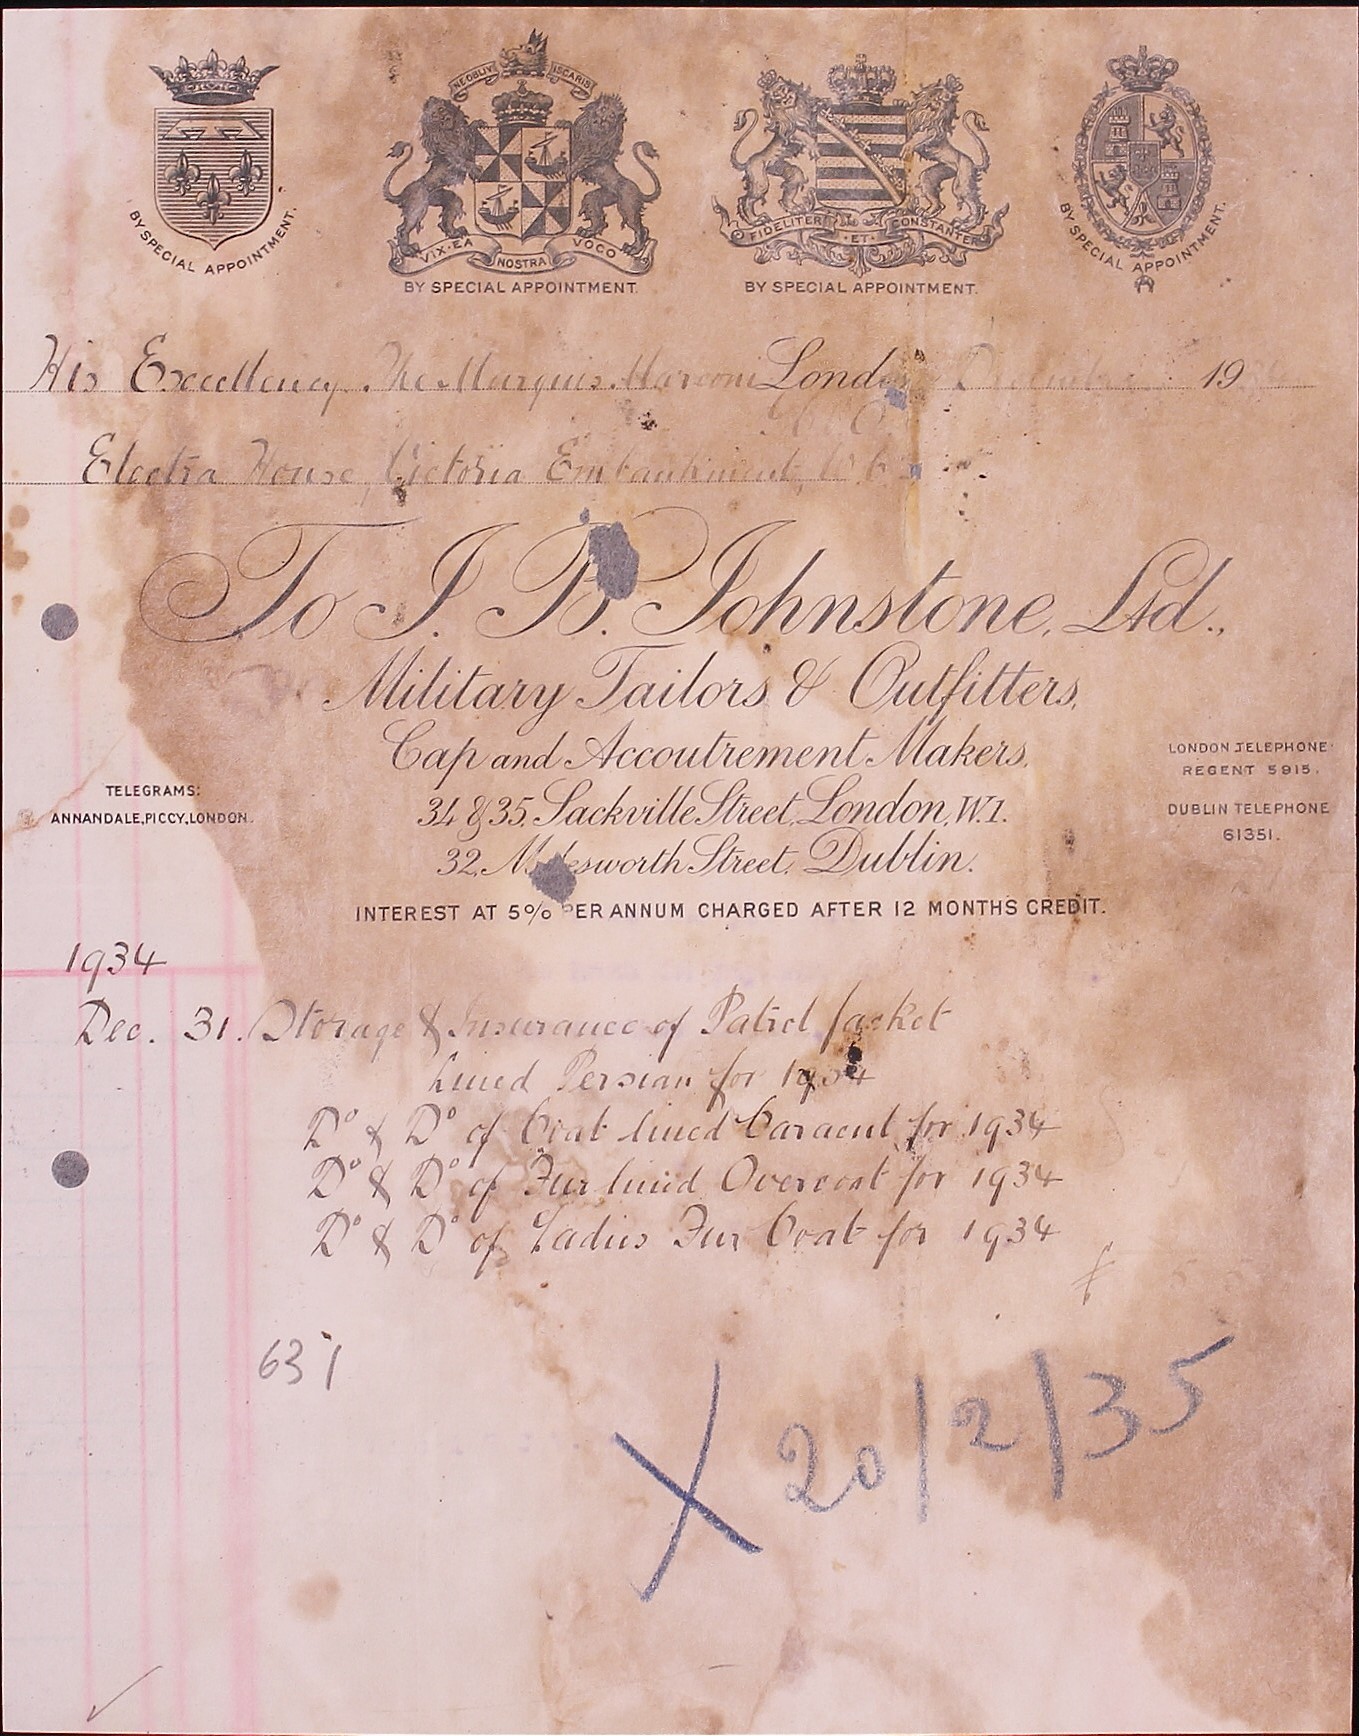 NE OBLIVISCARIS
VIX·EA NOSTRA VOCO
FIDELITER ·ET· CONSTANTER
BY SPECIAL APPOINTMENT.
BY SPECIAL APPOINTMENT.
BY SPECIAL APPOINTMENT.
BY SPECIAL APPOINTMENT.
His Excellency. The Marquis Marconi London December 19
Electra House, Victoria Embankment, W.C.
To J. B. Johnstone, Ltd.,
Military Tailors & Outfitters,
Cap and Accoutrement Makers.
34 & 35, Sackville Street, London, W.1.
32, Molesworth Street, Dublin.
TELEGRAMS:
ANNANDALE, PICCY, LONDON.
LONDON TELEPHONE
REGENT 5915.
DUBLIN TELEPHONE
61351.
INTEREST AT 5% PER ANNUM CHARGED AFTER 12 MONTHS CREDIT.
1934
Dec. 31. Storage & Insurance of Patrol Jacket
lined Persian for 1934
Do & Do of Coat lined Caracul for 1934
Do & Do of Fur lined Overcoat for 1934
Do & Do of Ladies Fur Coat for 1934
£
631
X 20/2/35